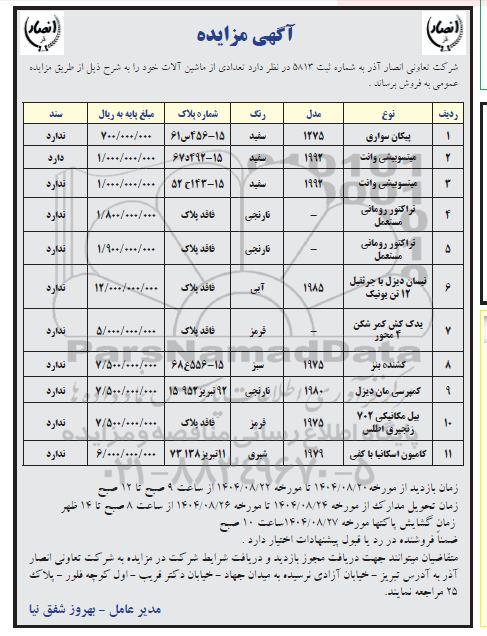 انصار
آگهی مزایده
انصار
شرکت تعاونی انصار آذر به شماره ثبت ۵۸۱۳ در نظر دارد تعدادی از ماشین آلات خود را به شرح ذیل از طریق مزایده
عمومی به فروش برساند .
ردیف نوع مدل رنگ شماره پلاک مبلغ پایه به ریال سند
۱ پیکان سواری ۱۲۷۵ سفید ۱۵-۴۵۶س۶۱ ۷۰۰/۰۰۰/۰۰۰ ندارد
۲ میتسوبیشی وانت ۱۹۹۲ سفید ۱۵-۴۹۲د۶۷ ۱/۰۰۰/۰۰۰/۰۰۰ دارد
۳ میتسوبیشی وانت ۱۹۹۲ سفید ۱۵-۱۴۳ج۵۲ ۱/۰۰۰/۰۰۰/۰۰۰ ندارد
۴ تراکتور رومانی مستعمل – نارنجی فاقد پلاک ۱/۸۰۰/۰۰۰/۰۰۰ ندارد
۵ تراکتور رومانی مستعمل – نارنجی فاقد پلاک ۱/۹۰۰/۰۰۰/۰۰۰ ندارد
۶ نیسان دیزل با جرثقیل ۱۲ تن یونیک ۱۹۸۵ آبی فاقد پلاک ۱۲/۰۰۰/۰۰۰/۰۰۰ ندارد
۷ یدک کش کمر شکن ۴ محور – قرمز فاقد پلاک ۵/۰۰۰/۰۰۰/۰۰۰ ندارد
۸ کشنده بنز ۱۹۷۵ سبز ۱۵-۵۵۶ع۶۸ ۷/۵۰۰/۰۰۰/۰۰۰ ندارد
۹ کمپرسی مان دیزل ۱۹۸۰ نارنجی ۹۲تبریز۹۵۲ ۱۵ ۷/۵۰۰/۰۰۰/۰۰۰ ندارد
۱۰ بیل مکانیکی ۷۰۲ زنجیری اطلس ۱۹۷۵ قرمز فاقد پلاک ۷/۵۰۰/۰۰۰/۰۰۰ ندارد
۱۱ کامیون اسکانیا با کفی ۱۹۷۹ شیری ۱۱تبریز۷۳ ۱۳۸ ۶/۰۰۰/۰۰۰/۰۰۰ ندارد
ParsNamadData
۰۲۱-۸۸۳۴۹۶۷۰-۵
زمان بازدید از مورخه ۱۴۰۴/۰۸/۲۰ تا مورخه ۱۴۰۴/۰۸/۲۲ از ساعت ۹ صبح تا ۱۲ صبح
زمان تحویل مدارک از مورخه ۱۴۰۴/۰۸/۲۴ تا مورخه ۱۴۰۴/۰۸/۲۶ از ساعت ۸ صبح تا ۱۴ ظهر
زمان گشایش پاکتها مورخه ۱۴۰۴/۰۸/۲۷ساعت ۱۰ صبح
ضمناً فروشنده در رد یا قبول پیشنهادات اختیار دارد .
متقاضیان میتوانند جهت دریافت مجوز بازدید و دریافت شرایط شرکت در مزایده به شرکت تعاونی انصار
آذر به آدرس تبریز - خیابان آزادی نرسیده به میدان جهاد - خیابان دکتر قریب - اول کوچه فلور - پلاک
۲۵ مراجعه نمایند.
مدیر عامل - بهروز شفق نیا